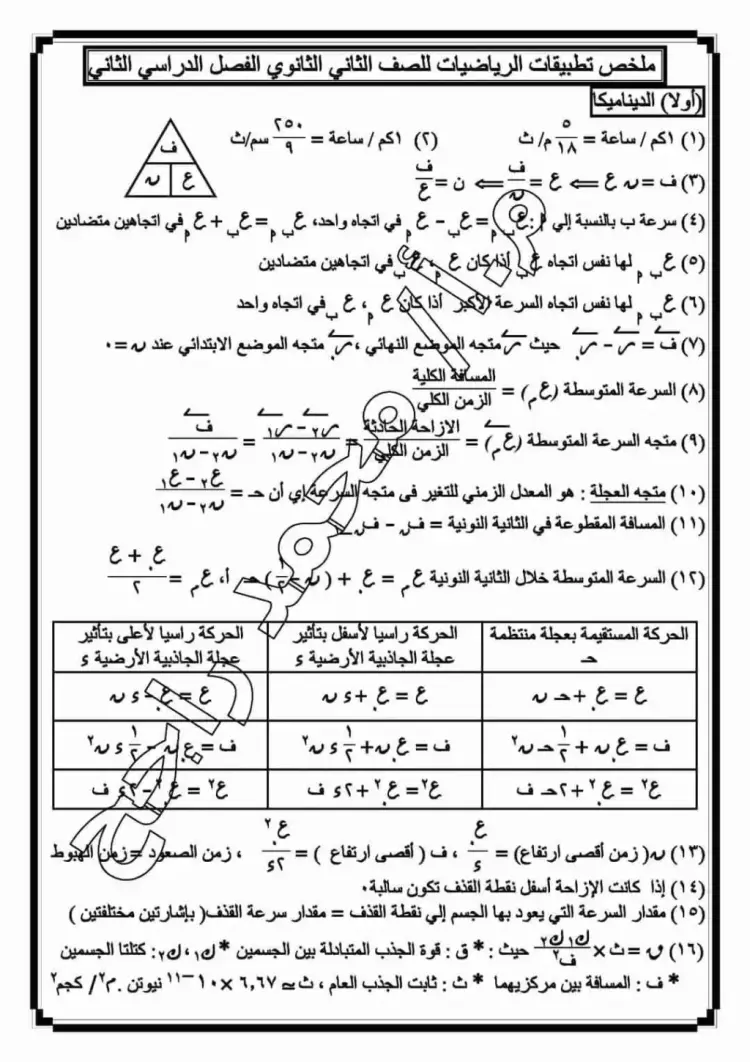 ملخص تطبيقات الرياضيات للصف الثاني الثانوي الفصل الدراسي الثاني
(أولا) الديناميكا
(١) ١كم / ساعة = ٥/١٨ م/ ث (٢) ١كم / ساعة = ٢٥٠/٩ سم/ث
ف
ن ع
(٣) ف = ن ع ⟸ ع = ف/ن ⟸ ن = ف/ع
(٤) سرعة ب بالنسبة إلي أ : ع ب م = ع ب - ع م في اتجاه واحد، ع ب م = ع ب + ع م في اتجاهين متضادين
(٥) ع ب م لها نفس اتجاه ع ب إذا كان ع م ، ع ب في اتجاهين متضادين
(٦) ع ب م لها نفس اتجاه السرعة الأكبر أذا كان ع م ، ع ب في اتجاه واحد
(٧) ف = ر - ر. حيث ر متجه الموضع النهائي ، ر. متجه الموضع الابتدائي عند ن = ٠
(٨) السرعة المتوسطة (ع م) = المسافة الكلية / الزمن الكلي
(٩) متجه السرعة المتوسطة (ع م) = الازاحة الحادثة / الزمن الكلي = ر٢ - ر١ / ن٢ - ن١ = ف / ن٢ - ن١
(١٠) متجه العجلة : هو المعدل الزمني للتغير فى متجه السرعة إي أن حـ = ع٢ - ع١ / ن٢ - ن١
(١١) المسافة المقطوعة في الثانية النونية = ف ن - ف ن-١
(١٢) السرعة المتوسطة خلال الثانية النونية ع م = ع. + ( ن - ١/٢ ) حـ أ، ع م = ع. + ع / ٢
الحركة المستقيمة بعجلة منتظمة حـ
الحركة راسيا لأسفل بتأثير عجلة الجاذبية الأرضية ء
الحركة راسيا لأعلى بتأثير عجلة الجاذبية الأرضية ء
ع = ع. + حـ ن
ع = ع. + ء ن
ع = ع. - ء ن
ف = ع. ن + ١/٢ حـ ن٢
ف = ع. ن + ١/٢ ء ن٢
ف = ع. ن - ١/٢ ء ن٢
ع٢ = ع.٢ + ٢حـ ف
ع٢ = ع.٢ + ٢ء ف
ع٢ = ع.٢ - ٢ء ف
(١٣) ن( زمن أقصى ارتفاع) = ع./ء ، ف ( أقصى ارتفاع ) = ع.٢/٢ء ، زمن الصعود = زمن الهبوط
(١٤) إذا كانت الإزاحة أسفل نقطة القذف تكون سالبة٠
(١٥) مقدار السرعة التي يعود بها الجسم إلي نقطة القذف = مقدار سرعة القذف( بإشارتين مختلفتين )
(١٦) ق = ث × ك١ ك٢ / ف٢ حيث : * ق : قوة الجذب المتبادلة بين الجسمين * ك١ ، ك٢ : كتلتا الجسمين
* ف : المسافة بين مركزيهما * ث : ثابت الجذب العام ، ث ≃ ٦,٦٧ × ١٠−١١ نيوتن .م٢/ كجم٢